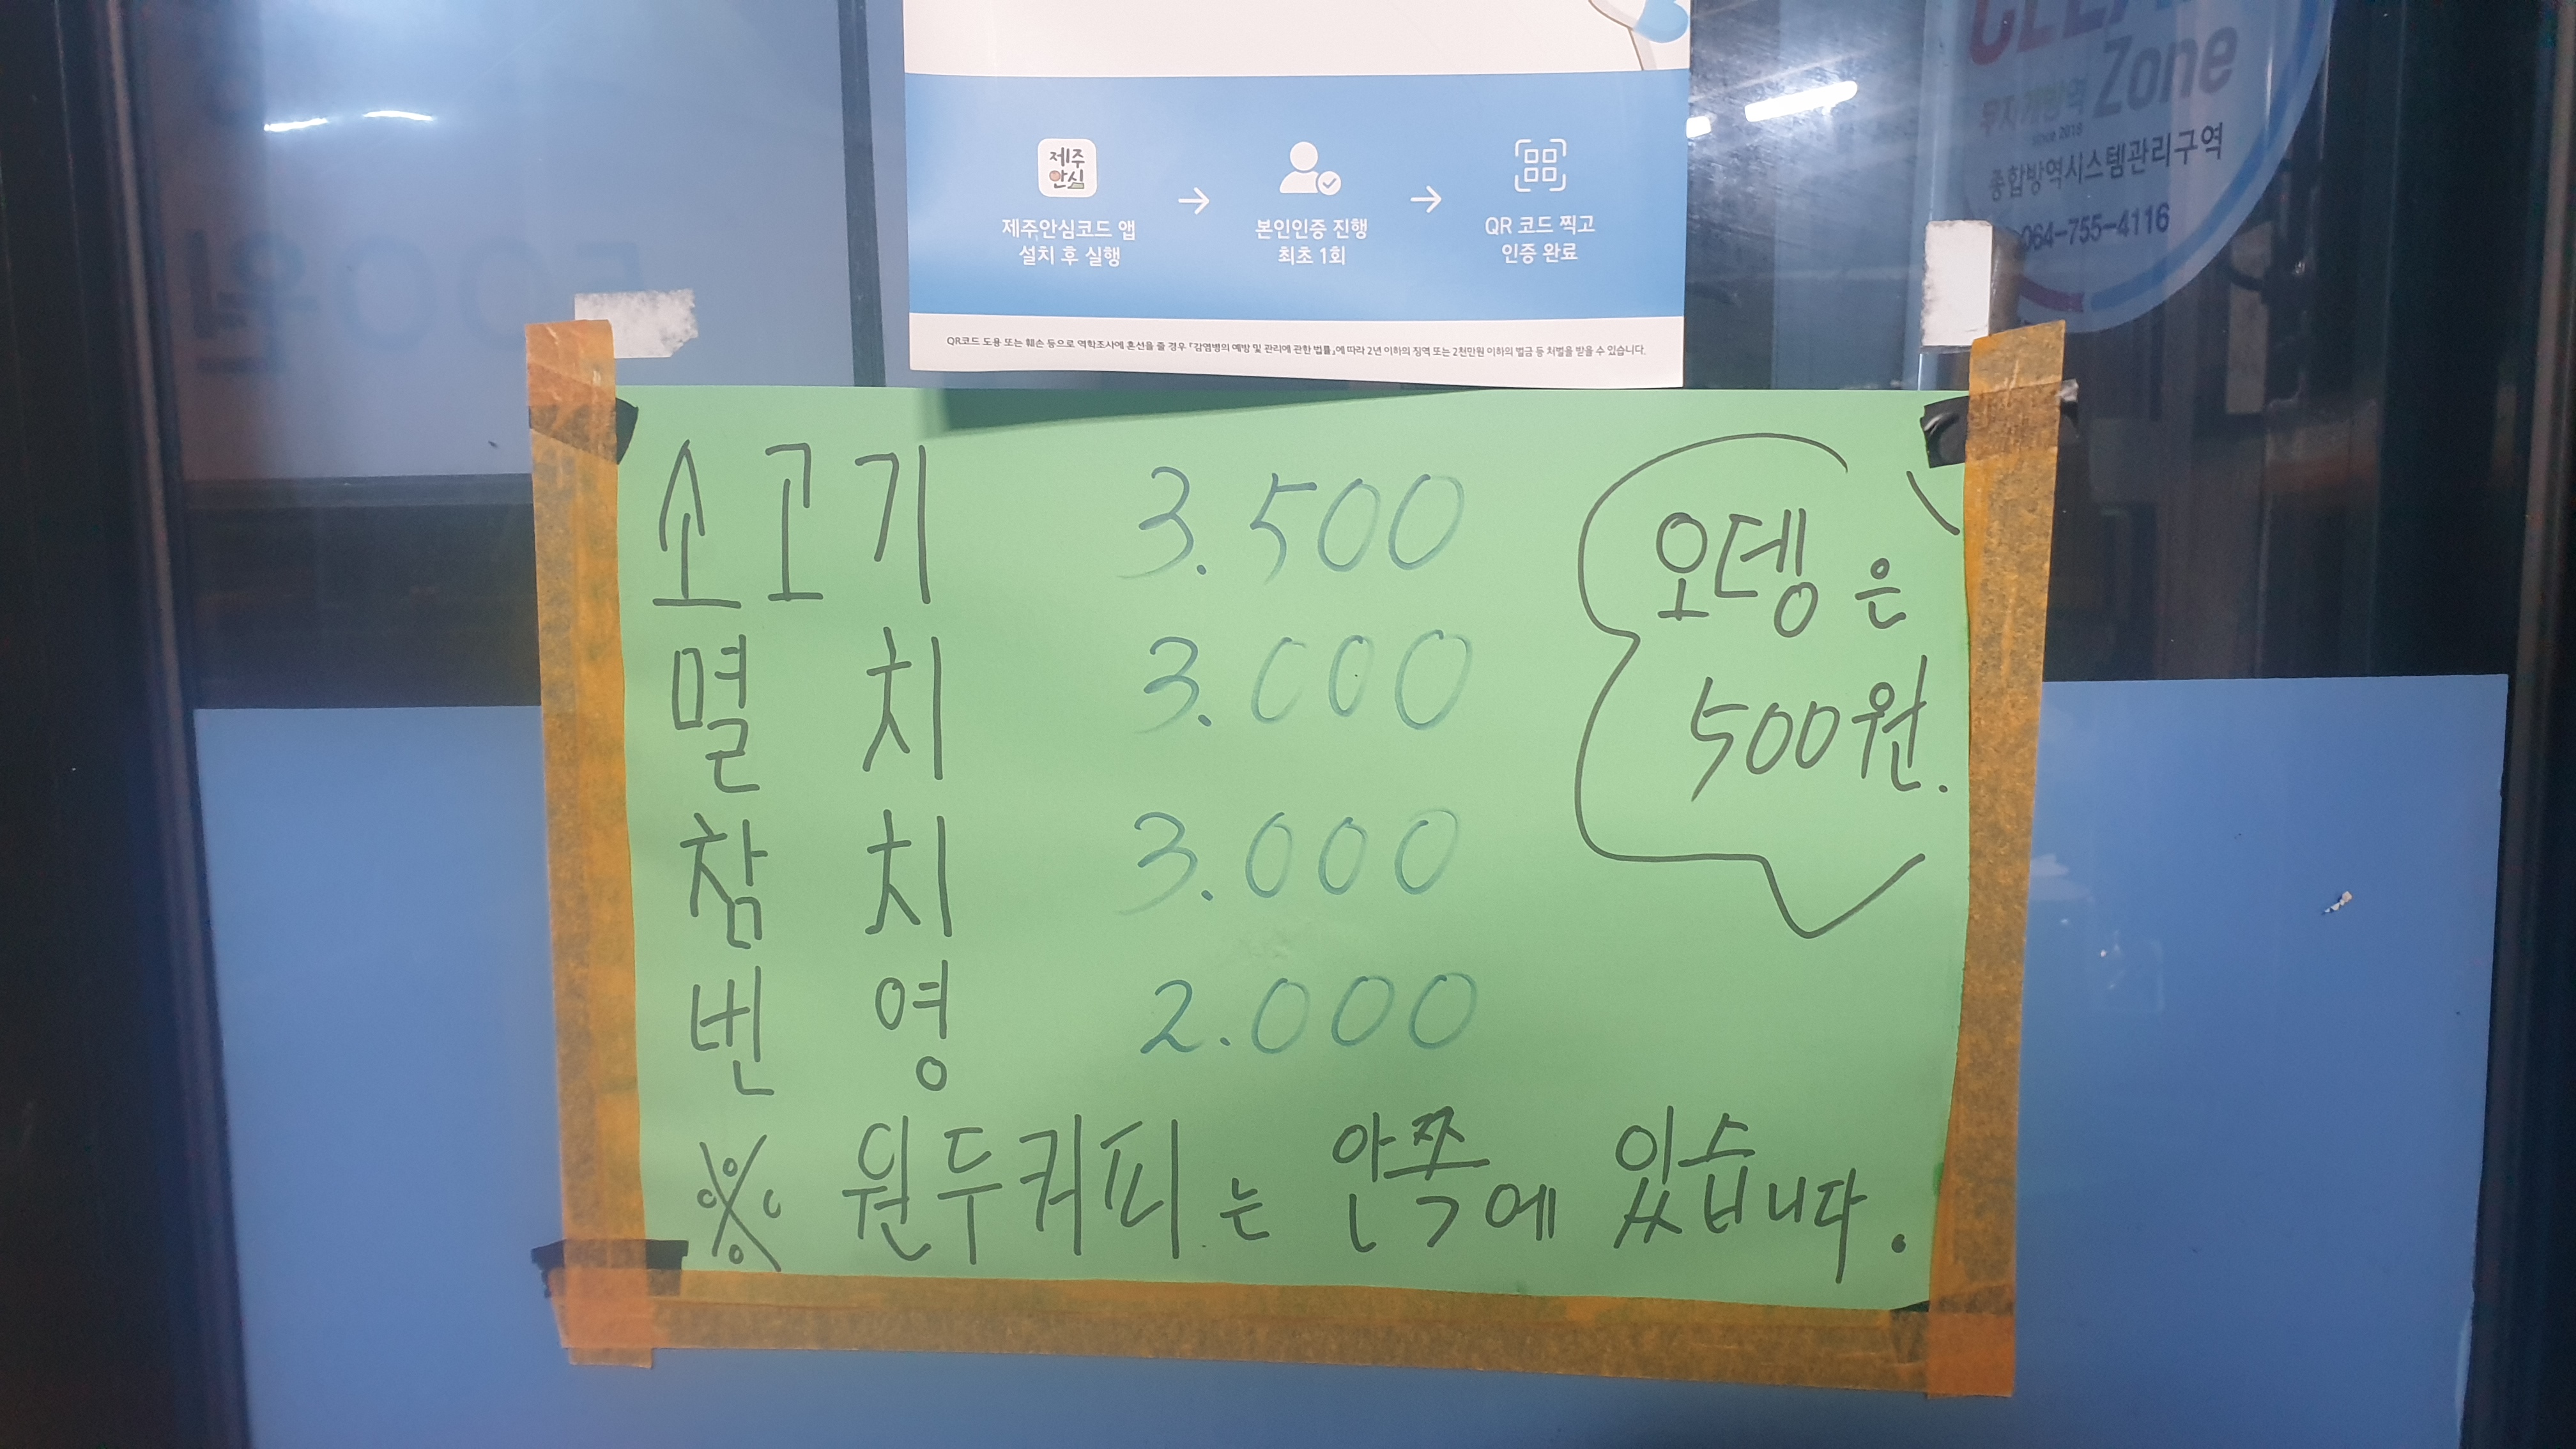 제주
안심
제주안심코드 앱
설치 후 실행
본인인증 진행
최초 1회
QR 코드 찍고
인증 완료
QR코드 도용 또는 훼손 등으로 역학조사에 혼선을 줄 경우 「감염병의 예방 및 관리에 관한 법률」에 따라 2년 이하의 징역 또는 2천만원 이하의 벌금 등 처벌을 받을 수 있습니다.
Zone
무지개방역
since 2018
종합방역시스템관리구역
064-755-4116
소고기 3.500
멸치 3.000
참치 3.000
번영 2.000
오뎅은
500원.
※ 원두커피는 안쪽에 있습니다.